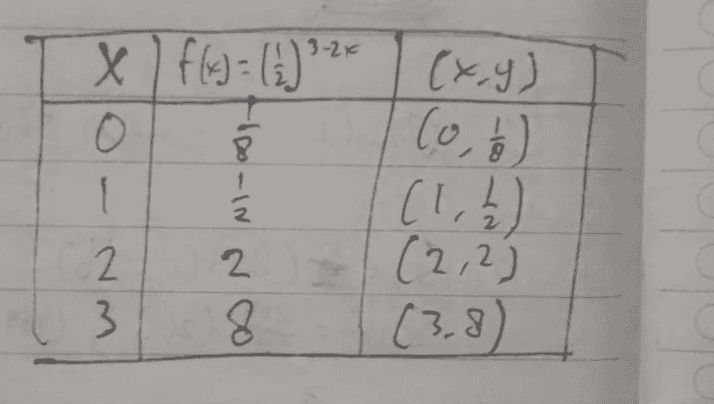 x f(x)=(1/2)^3-2x (x,y)
0 1/8 (0, 1/8)
1 1/2 (1, 1/2)
2 2 (2,2)
3 8 (3,8)